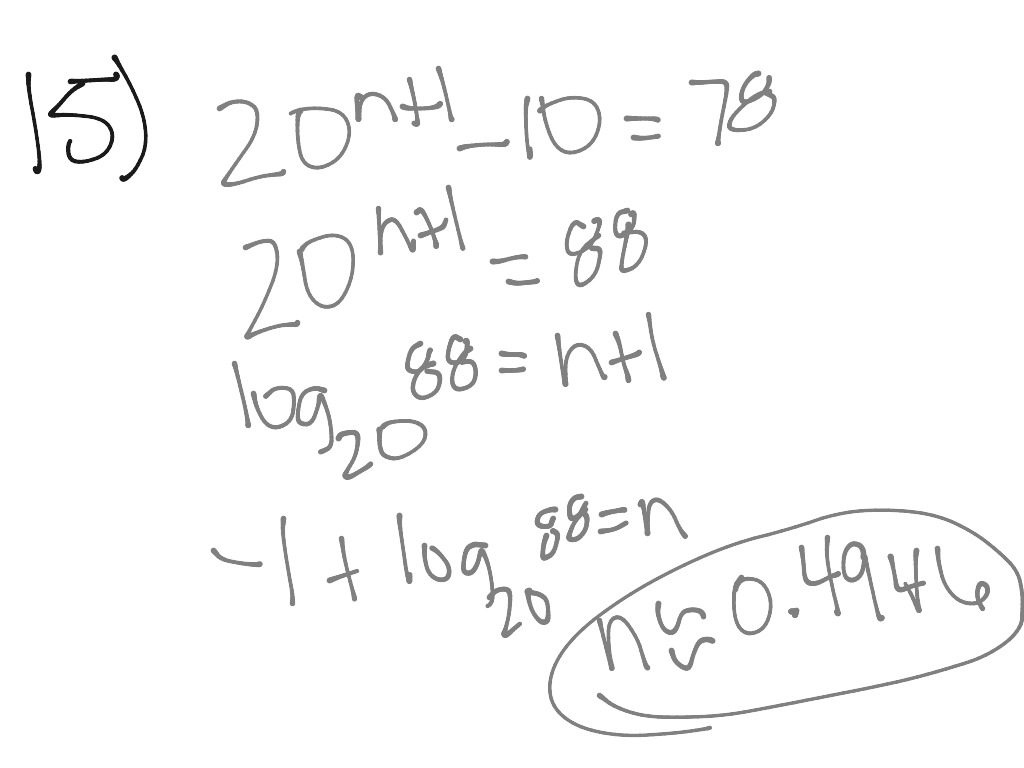 15) 20^{n+1} - 10 = 78
20^{n+1} = 88
log_{20} 88 = n+1
-1 + log_{20} 88 = n
n ≈ 0.4946